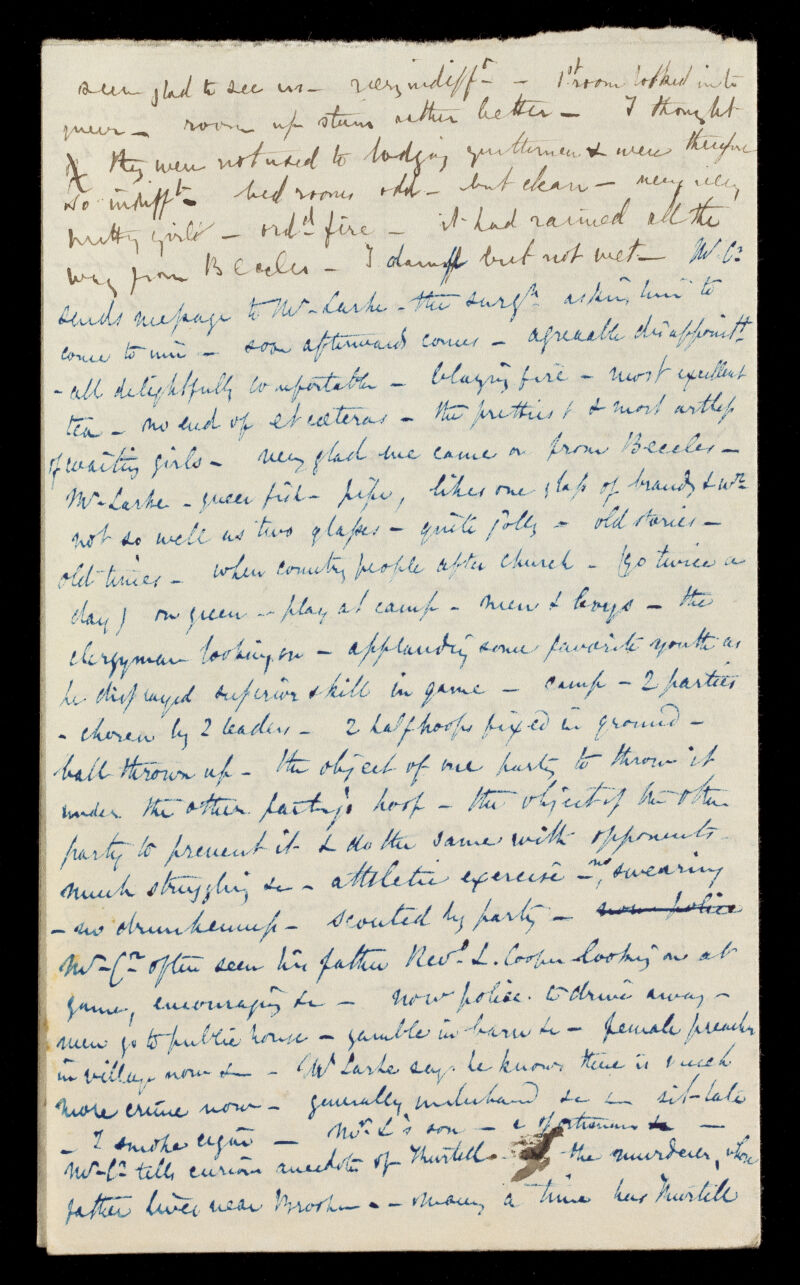 seem glad to see us - very indifft - 1st room looked into
queer - room up stairs rather better - I thought
they were not used to lodging gentlemen & were therefore
so indifft - bed rooms odd - but clean - very very
pretty girls - ordd fire - it had rained all the
way from Beccles - I damp but not wet - Mr Cr
sends message to Mr Larke - the surgn asking him to
come to inn - soon afterwards comes - agreeable disappointt
- all delightfully comfortable - blazing fire - most excellent
tea - no end of et cæteras - the prettiest & most artless
of waiting girls - very glad we came on from Beccles -
Mr Larke - queer fish - pipe, likes one glass of brandy & wr
not so well as two glasses - quite jolly - old stories -
old times - when country people after church - (go twice a
day) on green - play at camp - men & boys - the
clergyman looking on - applauding some favorite youth as
he displayed superior skill in game - camp - 2 parties
- chosen by 2 leaders - 2 half hoops fixed in ground -
ball thrown up - the object of one party to throw it
under the other party's hoop - the object of the other
party to prevent it & do the same with opponents -
much struggling &c - athletic exercise - no swearing
- no drunkenness - scouted by party - now police
Mr Cr often seen his father Revd L. Cooper looking on at
game, encouraging &c - now police to drive away -
men go to public house - gamble in barns &c - female preacher
in village now &c - Mr Larke says he knows there is much
more crime now - generally &c &c - sit late
- I smoke cigar - Mr L's son - &c -
Mr Cr tells curious anecdote of Thurtell - the murderer, whose
father lives near Brooke - - many a time has Thurtell